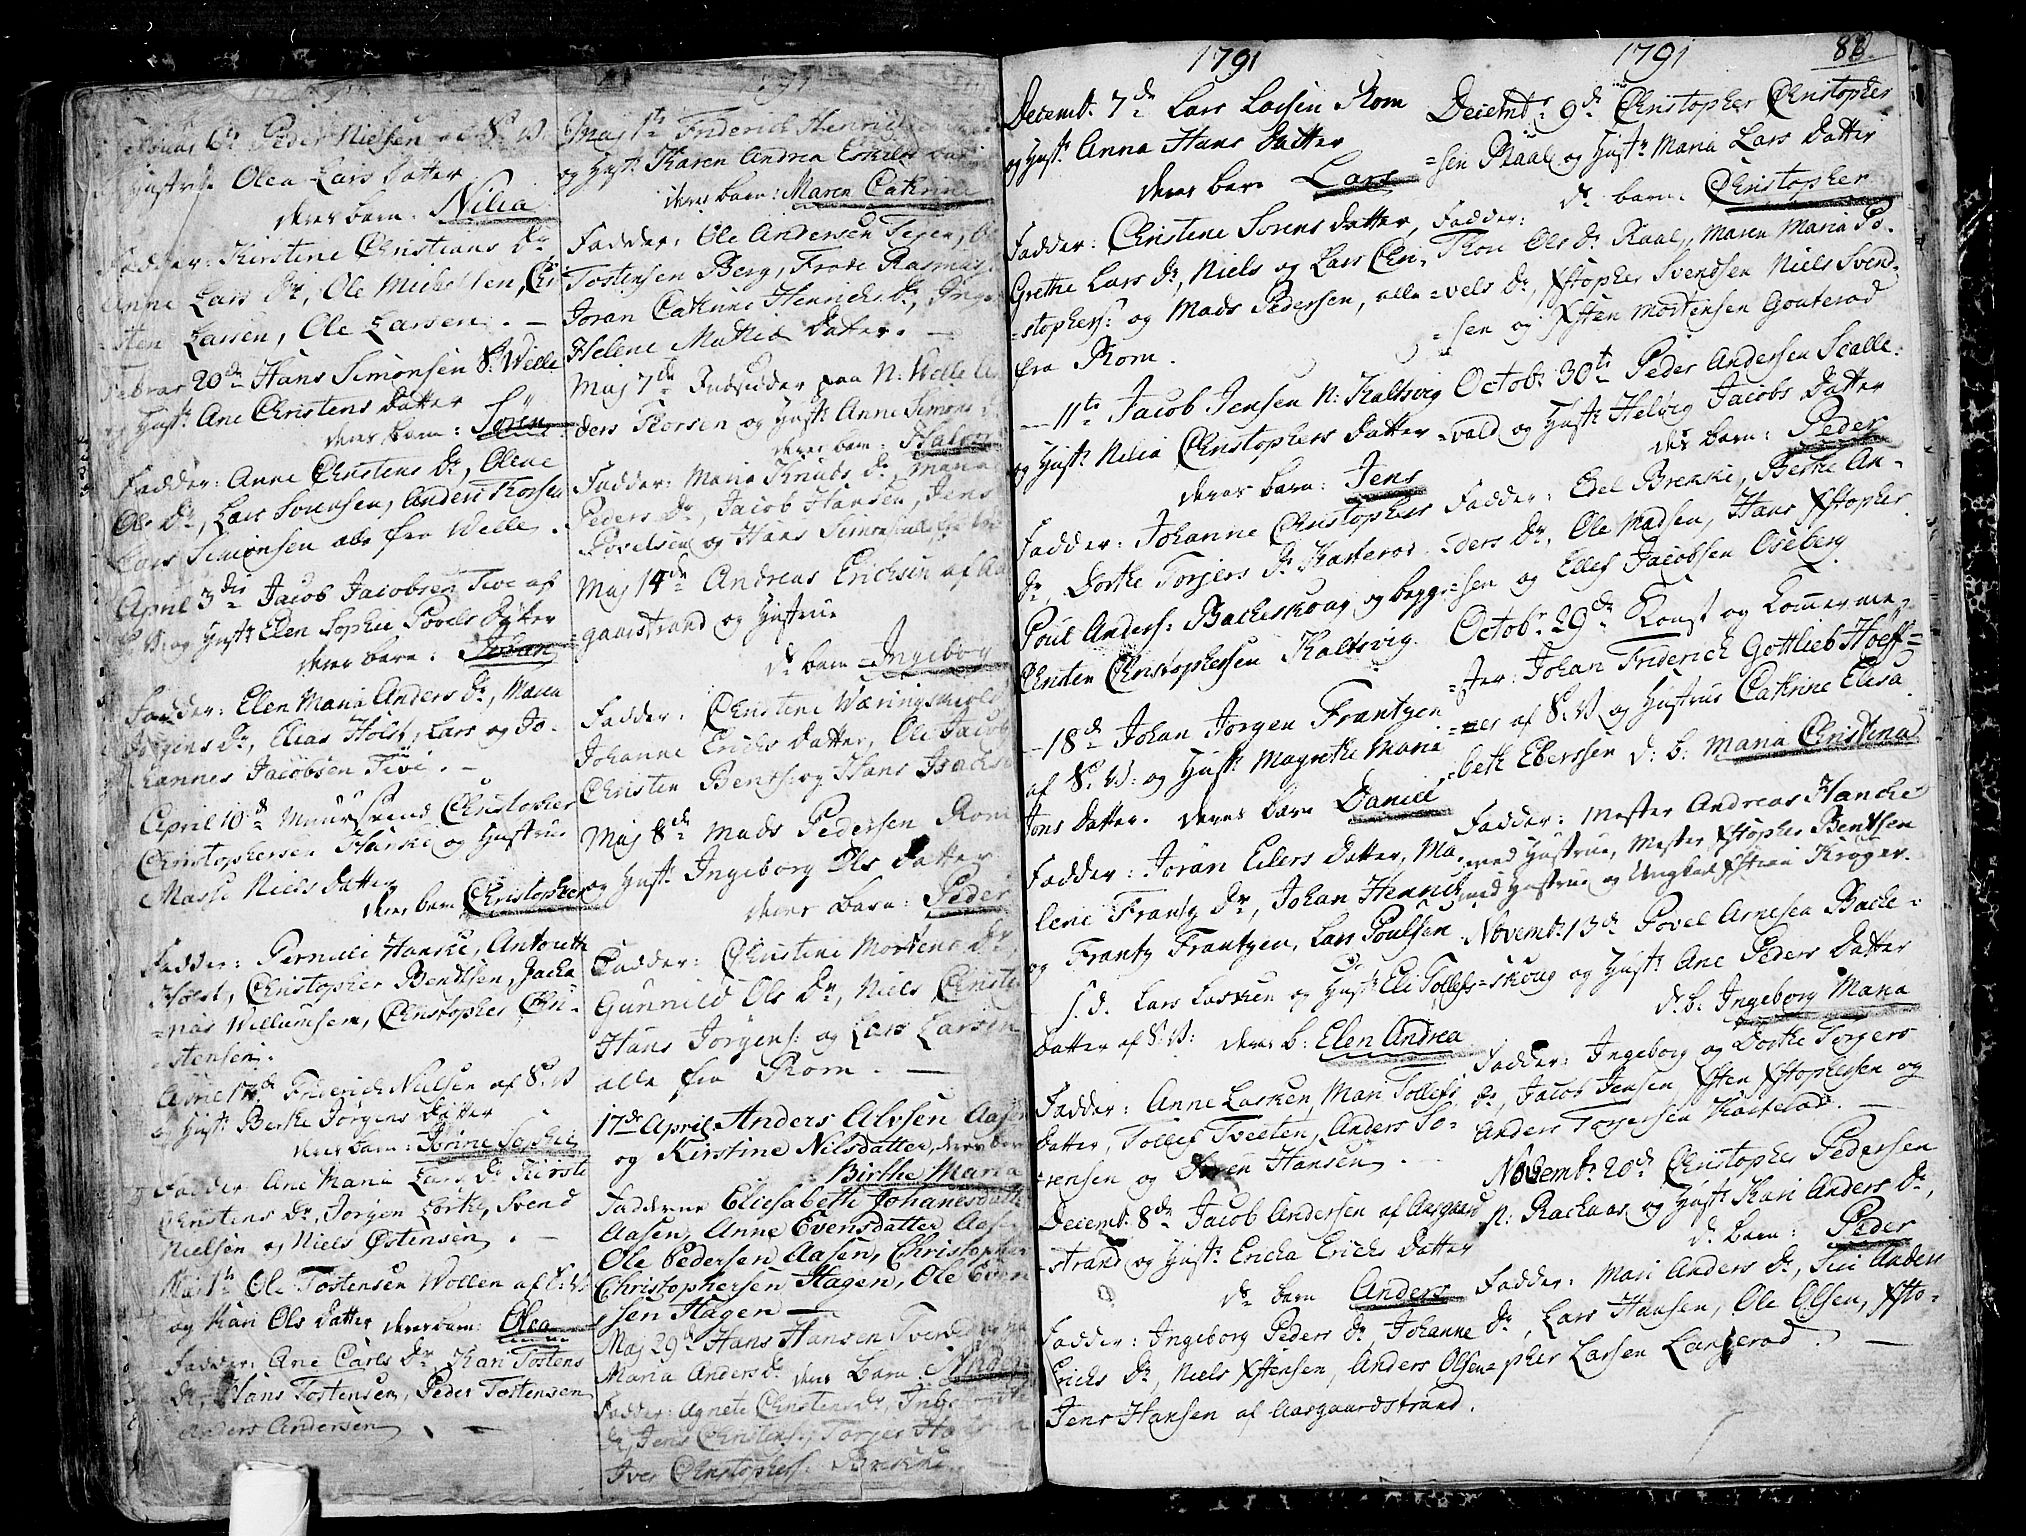 Peder Nielsen
Hustr: Olea Lars Datter
deres barn: Nilia
Fadder: Kirstine Christians Dr
Anne Lars Dr, Ole Michelsen, Chri
-sten Larsen, Ole Larsen. —
Februar 20de Hans Simonsen S: Welle
og Hust: Ane Christens Datter
deres barn: Sören
Fadder: Anne Christens Dr, Olene
Ols Dr, Lars Sorensen, Anders Thorsen
Lars Simonsen alle fra Welle.
April 3die Jacob Jacobsen Tive af
S: W: og Hust: Elen Sophie Povels Datter
deres barn: Johan
Fadder: Elen Maria Anders Dr, Maria
Jörgens Dr, Elias Holst, Lars og Jo-
hannes Jacobsen Tive. —
April 10de Muur Svend Christopher
Christophersen Hanske og Hustrue
Maste Niels Datter
deres barn Christopher
Fadder: Pernille Hanske, Antonette
Holst, Christopher Bendtsen, Jacha
-rias Willumsen, Christopher Chri-
stensen.
April 17de Friderich Nielsen af S: W
og Hust: Berthe Jörgens Datter
deres barn: Sörine Sophie
Fadder: Ane Maria Lars Dr Kirste
Christens Dr, Jörgen Lörche, Svend
Nielsen og Niels Östensen. —
Maj 1te Ole Tostensen Wollen af S: W:
og Kari Ols Datter deres barn: Olea
Fadder: Ane Carls Dr, Kari Tostens
Dr, Hans Tostensen, Peder Tostensen
Anders Andersen. —
Maj 1te Friderich Henrich
og Hust: Karen Andrea Eskilds Datter
deres barn: Maren Cathrine
Fadder: Ole Andersen Tejen,
Tostensen Berg, Frode Rasmus
Joran Cathrine Henrichs Dr, Inge
Helene Mathia Datter. —
Maj 7de Indsidder paa N: Welle An
ders Thorsen og Hust: Anne Simons D
deres barn: Halvor
Fadder: Maria Knuds Dr, Maria
Peders Dr, Jacob Hansen, Jens
Povelsen og Hans Simonsen alle fra
Maj 14de Andreas Erichsen af Aa
-gaardstrand og Hustrue
Ds barn Ingeborg
Fadder: Christine Wæringskiold
Johanne Erichs Datter, Ole Jacob
Christen Bents: og Hans Isachs
Maj 8de Mads Pedersen Rom
og Hust: Ingeborg Ols Datter
deres barn: Peder
Fadder: Christine Mortens Dr
Gunnild Ols Dr, Niels Christe
Hans Jörgens: og Lars Larsen
alle fra Rom. —
17de April Anders Alvsen Aasen
og Kirstine Nilsdatter, deres barn
Birthe Maria
Fadderne Eliesabeth Johanesdatter
Aasen, Anne Evensdatter Aasen
Ole Pedersen Aasen, Christopher
Christophersen Hagen, Ole Even
sen Hagen —
Maj 29de Hans Hansen Tveden og
Maria Anders Dr deres Barn: Anders
Fadder: Agnete Christens Dr, Ingeborg
Dr, Jens Christens:, Torger
Iver Christophers: Brekke
1791
Decemb: 7de Lars Larsen Rom
og Hust: Anna Hans Datter
deres barn Lars
Fadder: Christine Sorens Datter,
Grethe Lars Dr, Niels og Lars Chri-
-stophers: og Mads Pedersen, alle
fra Rom.
— 11te Jacob Jensen N: Kaltsvig
og Hust: Nilia Christophers Datter
deres barn: Jens
Fadder: Johanne Christophers
Dr, Dorthe Torjers Dr Kasterod
Poul Anders: Bacheskoug og begge
Christen Christophersen Kaltsvig.
— 18de Johan Jorgen Frantzen
af S: W: og Hust: Magrethe Maria
Jons Datter. deres barn Daniel
Fadder: Joran Eilers Datter, Ma-
lene Frantz Dr, Johan Henrich
og Frantz Frantzen, Lars Poulsen
S. D. Lars Lasken og Hust: Eli Tollefs
Datter af S: W: deres b: Elen Andrea
Fadder: Anne Lasken, Mari Tollefs
Datter, Tollef Tveeten, Anders So-
rensen og Sören Hansen. —
Decemb: 8de Jacob Andersen af Aasgaard
-strand og Hust: Ericka Erichs Datter
Ds barn Anders
Fadder: Ingeborg Peders Dr, Johanne
Erichs Dr, Niels Xstensen, Anders Olsen
Jens Hansen af Aasgaardstrand.
1791 88.
Decembr 9de Christopher Christopher-
-sen Raael og Hustr: Maria Lars Datter
Ds barn: Christopher
Fadder:
Thore Ols Dr Raael, Maren Maria Po-
-vels Dr, Xstopher Svendsen Niels Svend-
-sen og Xsten Mortensen Gouterod
Octobr 30te Peder Andersen Scalle-
-vold og Hust: Helvig Jacobs Datter
Des barn: Peder
Fadder: Edel Brekke, Berthe An-
-ders Dr, Ole Madsen, Hans Xstopher-
-sen og Ellef Jacobsen Oseberg.
Octobr 29de Konst og Tommerme-
-ster: Johan Friderich Gottlieb Hoeff-
-ner af S: W og Hustrue Cathrine Elisa-
-beth Eberssen D: b: Maria Christina
Fadder: Mester Andreas Hancke
med Hustrue, Mester Xstopher Bentsen
med Hustrue og Ungkarl Xstian Kröger.
Novembr 13de Povel Arnesen Backe-
-skoug og Hust: Ane Peders Datter
D. b. Ingeborg Maria
Fadder: Ingeborg og Dorthe Torgers
Dr, Jacob Jensen Xsten Xstophersen og
Anders Torgersen Kasterod. —
Novembr 20de Christopher Pedersen
N: Rackaas og Hust: Kari Anders Dr,
Ds barn: Peder
Fadder: Mari Anders Dr, Siri Anders
Dr, Lars Hansen, Ole Olsen, Xsto-
-pher Larsen Langerod. —